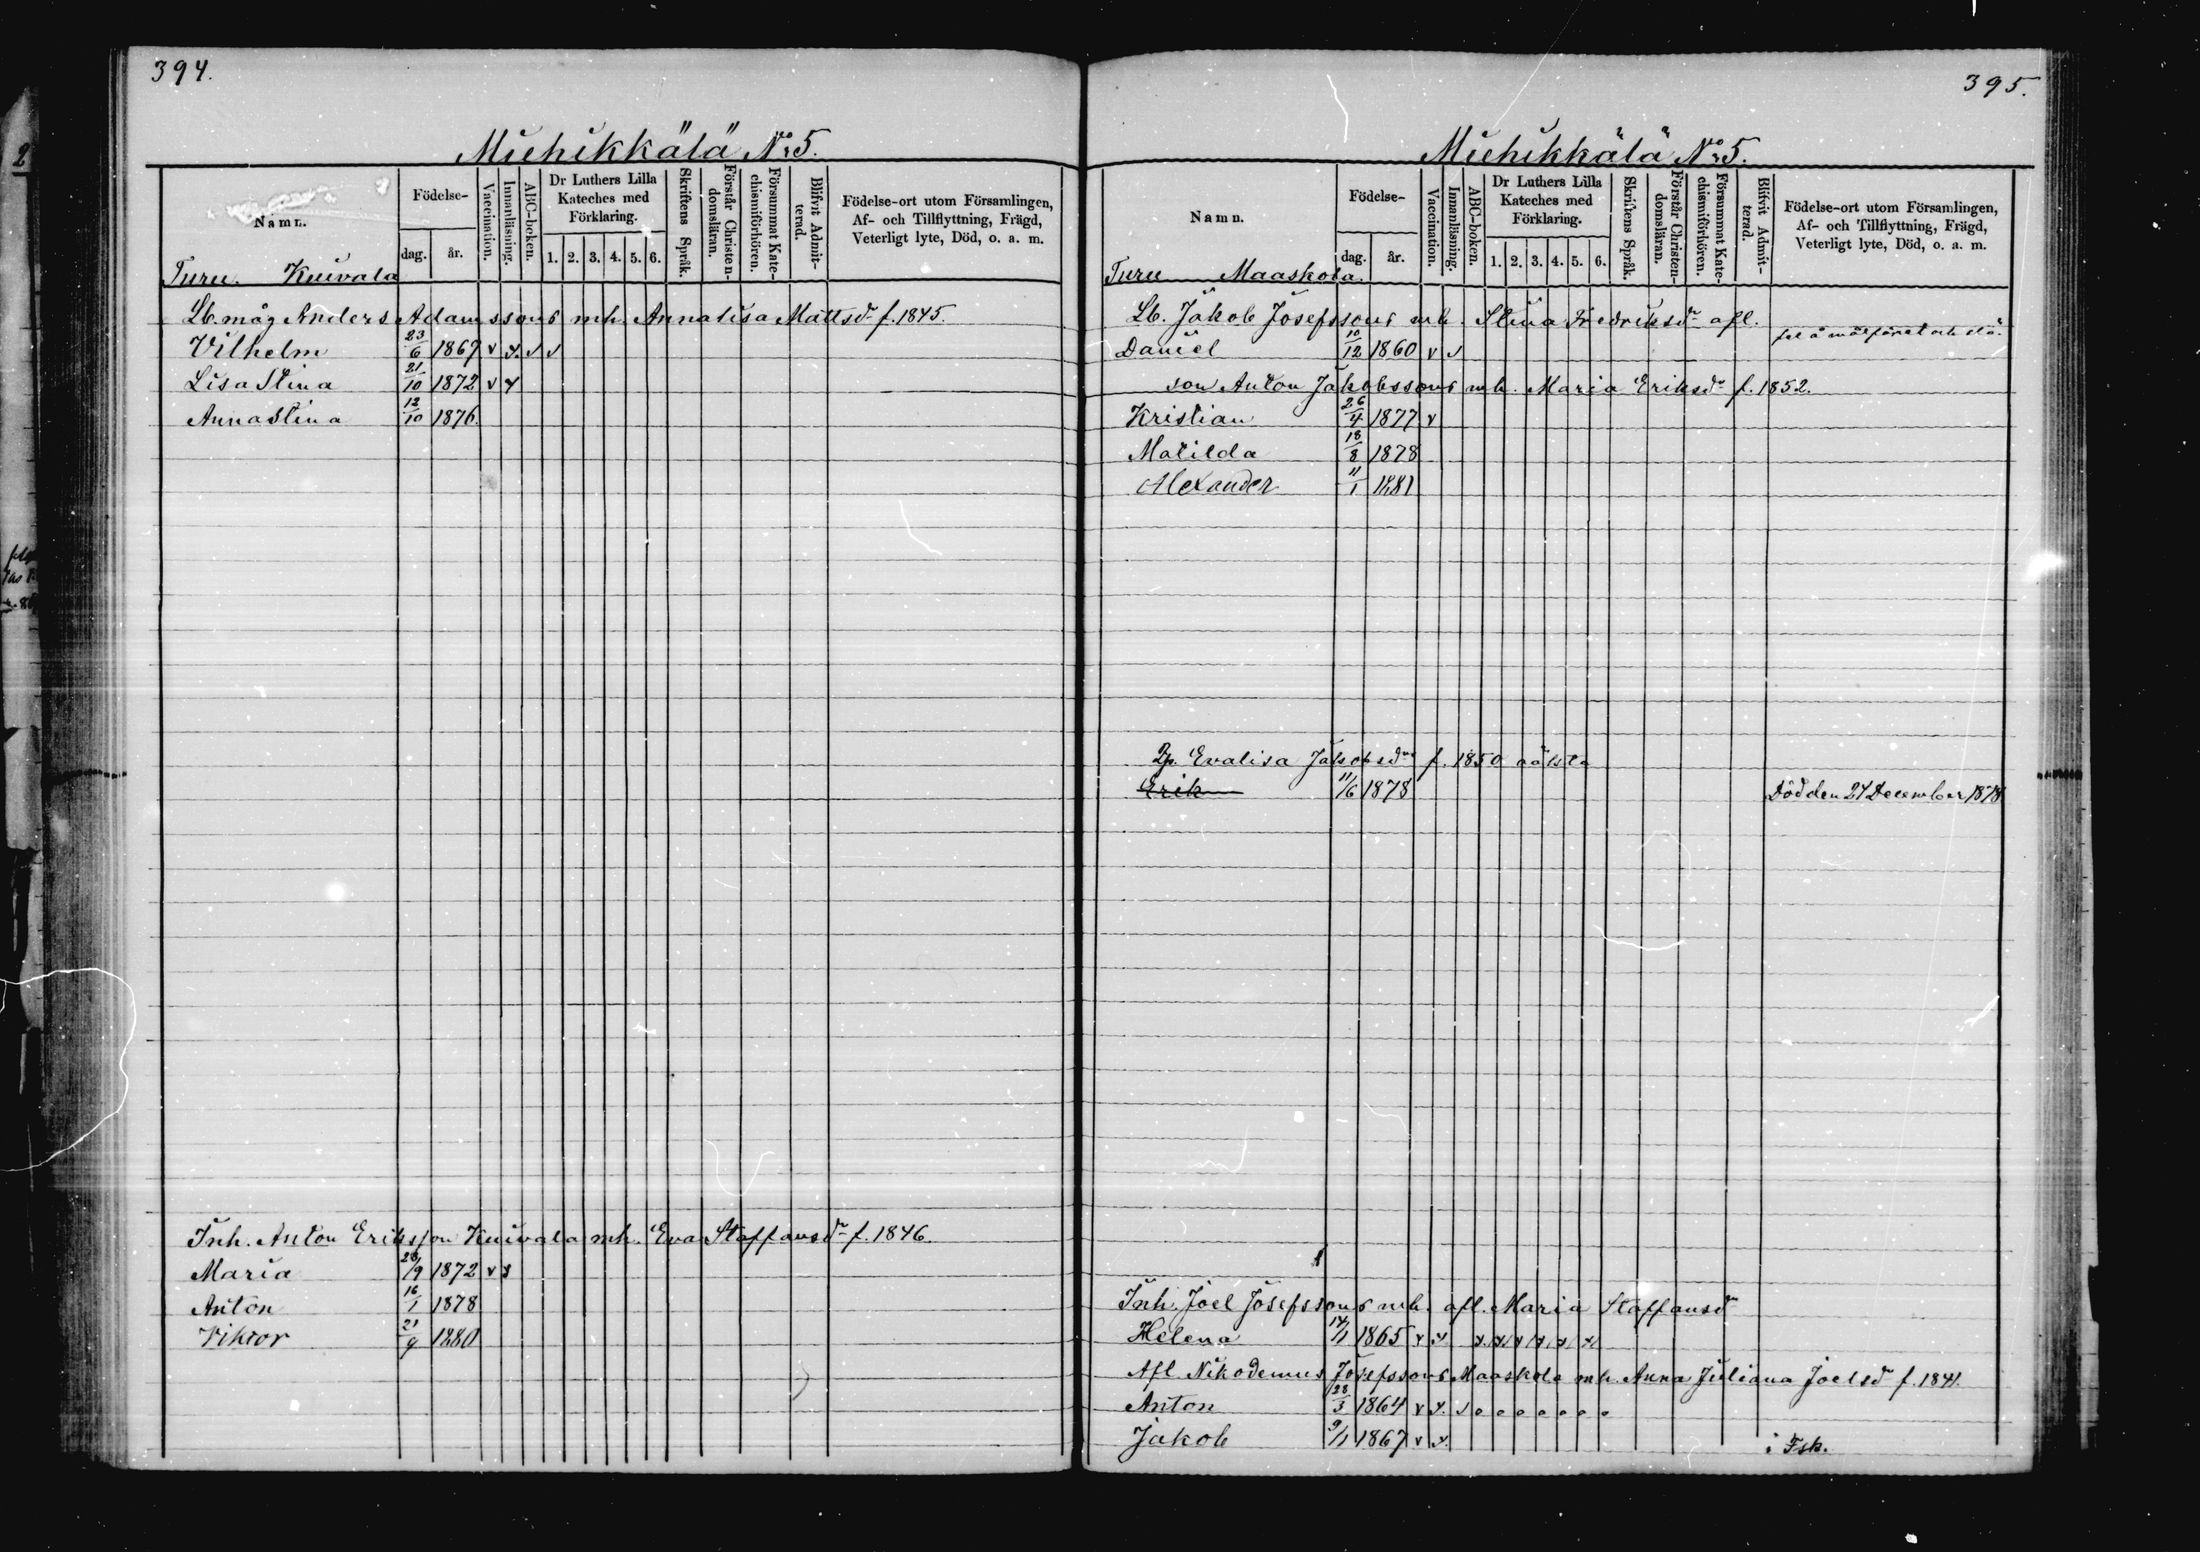 394.
Miehikkälä № 5.
Namn.
Födelse-
dag.
år.
Vaccination.
Innanläsning.
ABC-boken.
Dr Luthers Lilla
Kateches med
Förklaring.
1. 2. 3. 4. 5. 6.
Skriftens Språk.
Förstår Christen-
domsläran.
Försummat Kate-
chismiförhören.
Blifvit Admit-
terad.
Födelse-ort utom Församlingen,
Af- och Tillflyttning, Frägd,
Veterligt lyte, Död, o. a. m.
Turu. Kuivala
Lb. måg Anders Adamssons mh. Annalisa Mattsdr f. 1845.
Vilhelm 23/6 1867 v x v v
Lisa Stina 21/10 1872 v x
Anna Stina 12/10 1876.
Inh. Anton Eriksson Kuivala mh. Eva Staffansdr f. 1846.
Maria 28/9 1872 v x
Anton 16/1 1878
Viktor 21/9 1880
395.
Miehikkälä № 5.
Namn.
Födelse-
dag.
år.
Vaccination.
Innanläsning.
ABC-boken.
Dr Luthers Lilla
Kateches med
Förklaring.
1. 2. 3. 4. 5. 6.
Skriftens Språk.
Förstår Christen-
domsläran.
Försummat Kate-
chismiförhören.
Blifvit Admit-
terad.
Födelse-ort utom Församlingen,
Af- och Tillflyttning, Frägd,
Veterligt lyte, Död, o. a. m.
Turu Maaskola.
Lb. Jakob Josefssons mh. Stina Fredriksdr afl.
Daniel 10/12 1860 v v
son Anton Jakobssons mh. Maria Eriksdr f. 1852.
Kristian 26/4 1877 v
Matilda 18/8 1878
Alexander 11/1 1881
Evalisa Jakobsdrs f. 1850 oäkta
Erik 11/6 1878 Död den 27 December 1878
Inh. Joel Josefssons mh. afl. Maria Staffansdr
Helena 14/1 1865 x x x x x x x x
Afl. Nikodemus Josefssons Maaskola mh. Anna Juliana Joelsd f. 1841.
Anton 28/3 1864 v x. v o o o o o o o
Jakob 9/1 1867 v x. i Fsk.